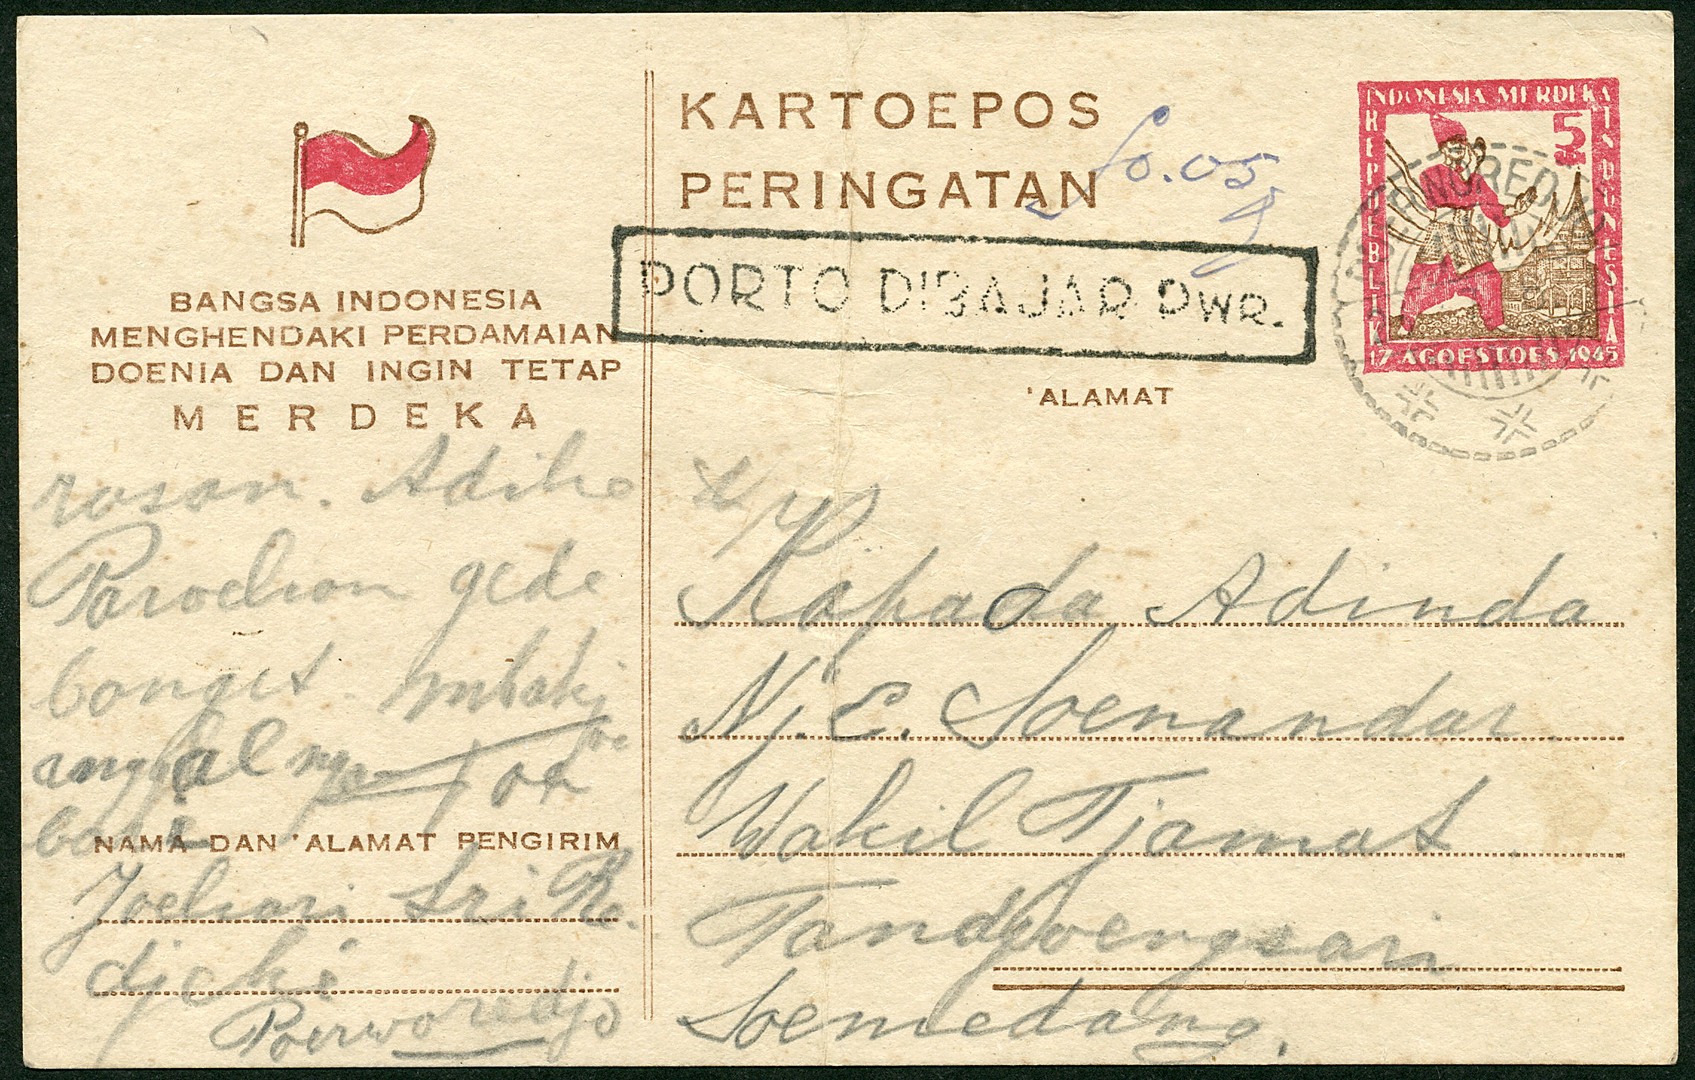 BANGSA INDONESIA
MENGHENDAKI PERDAMAIAN
DOENIA DAN INGIN TETAP
MERDEKA
rosan. Adike
Paroelian gede
banget mbakj
anggalnja
NAMA DAN 'ALAMAT PENGIRIM
Joehari Sri Re.
djeki
Poerworedjo
KARTOEPOS
PERINGATAN
fo.05
PORTO DIBAJAR PWR.
'ALAMAT
INDONESIA MERDEKA
5
SEN
REPOEBLIK
INDONESIA
17 AGOESTOES 1945
Kapada Adinda
Nj. E. Soenandar
Wakil Tjamat
Tandjoengsari
Soemedang.